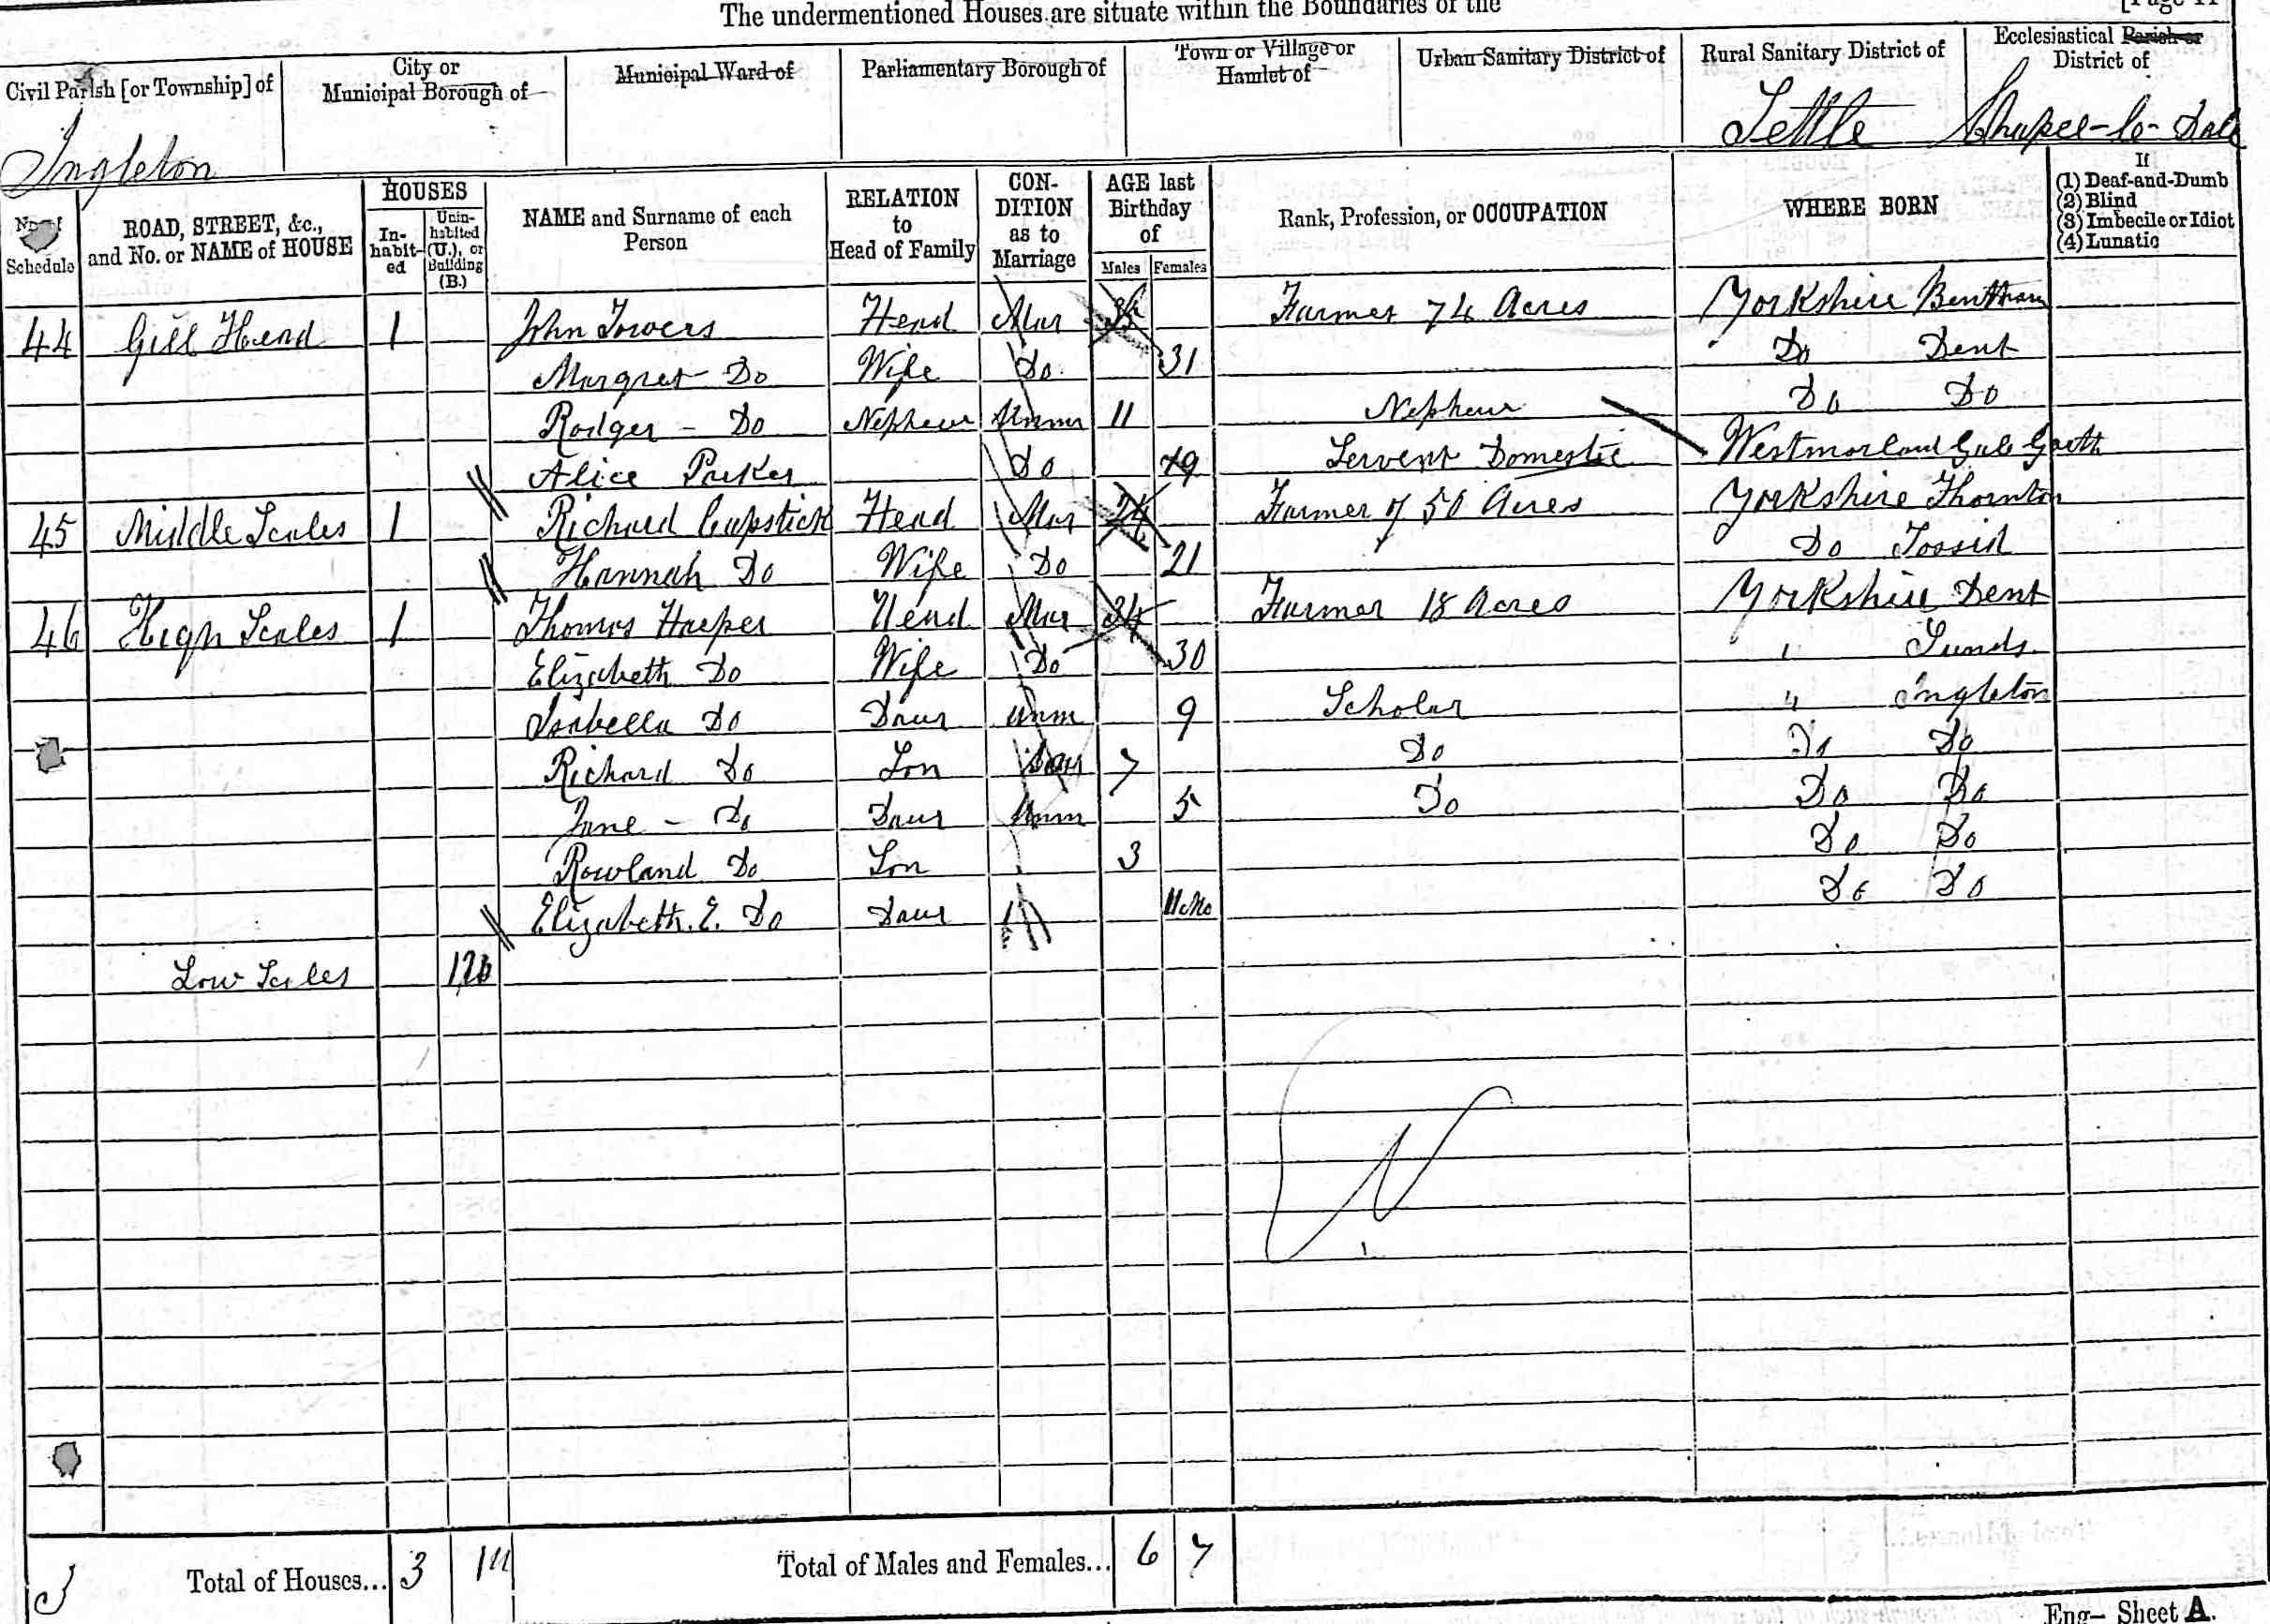 The undermentioned Houses are situate within the Boundaries of the [Page 11
Civil Parish [or Township] of
City or Municipal Borough of
Municipal Ward of
Parliamentary Borough of
Town or Village or Hamlet of
Urban Sanitary District of
Rural Sanitary District of
Ecclesiastical Parish or District of
Ingleton Settle Chapel-le-Dale
No. of Schedule
ROAD, STREET, &c., and No. or NAME of HOUSE
HOUSES
In-habit-ed
Unin-habited (U.), or Building (B.)
NAME and Surname of each Person
RELATION to Head of Family
CON-DITION as to Marriage
AGE last Birthday of
Males Females
Rank, Profession, or OCCUPATION
WHERE BORN
If
(1) Deaf-and-Dumb
(2) Blind
(3) Imbecile or Idiot
(4) Lunatic
44 Gill Head 1 John Towers Head Mar Farmer 74 Acres Yorkshire Bentham
Margret Do Wife Do 31 Do Dent
Rodger - Do Nephew Unmr 11 Nephew Do Do
Alice Parker Do 19 Servent Domestic Westmorland Garth
45 Middle Scales 1 Richard Capstick Head Mar Farmer of 50 Acres Yorkshire Thornton
Hannah Do Wife Do 21 Do Tossid
46 High Scales 1 Thomas Harper Head Mar 34 Farmer 18 Acres Yorkshire Dent
Elizabeth Do Wife Do 30 " Lunds
Isabella Do Daur Unm 9 Scholar " Ingleton
Richard Do Son 7 Do Do Do
Jane - Do Daur Unm 5 Do Do Do
Rowland Do Son 3 Do Do
Elizabeth. E. Do Daur 11 Mo Do Do
Low Scales
Total of Houses... 3 1U Total of Males and Females... 6 7
Eng- Sheet A.